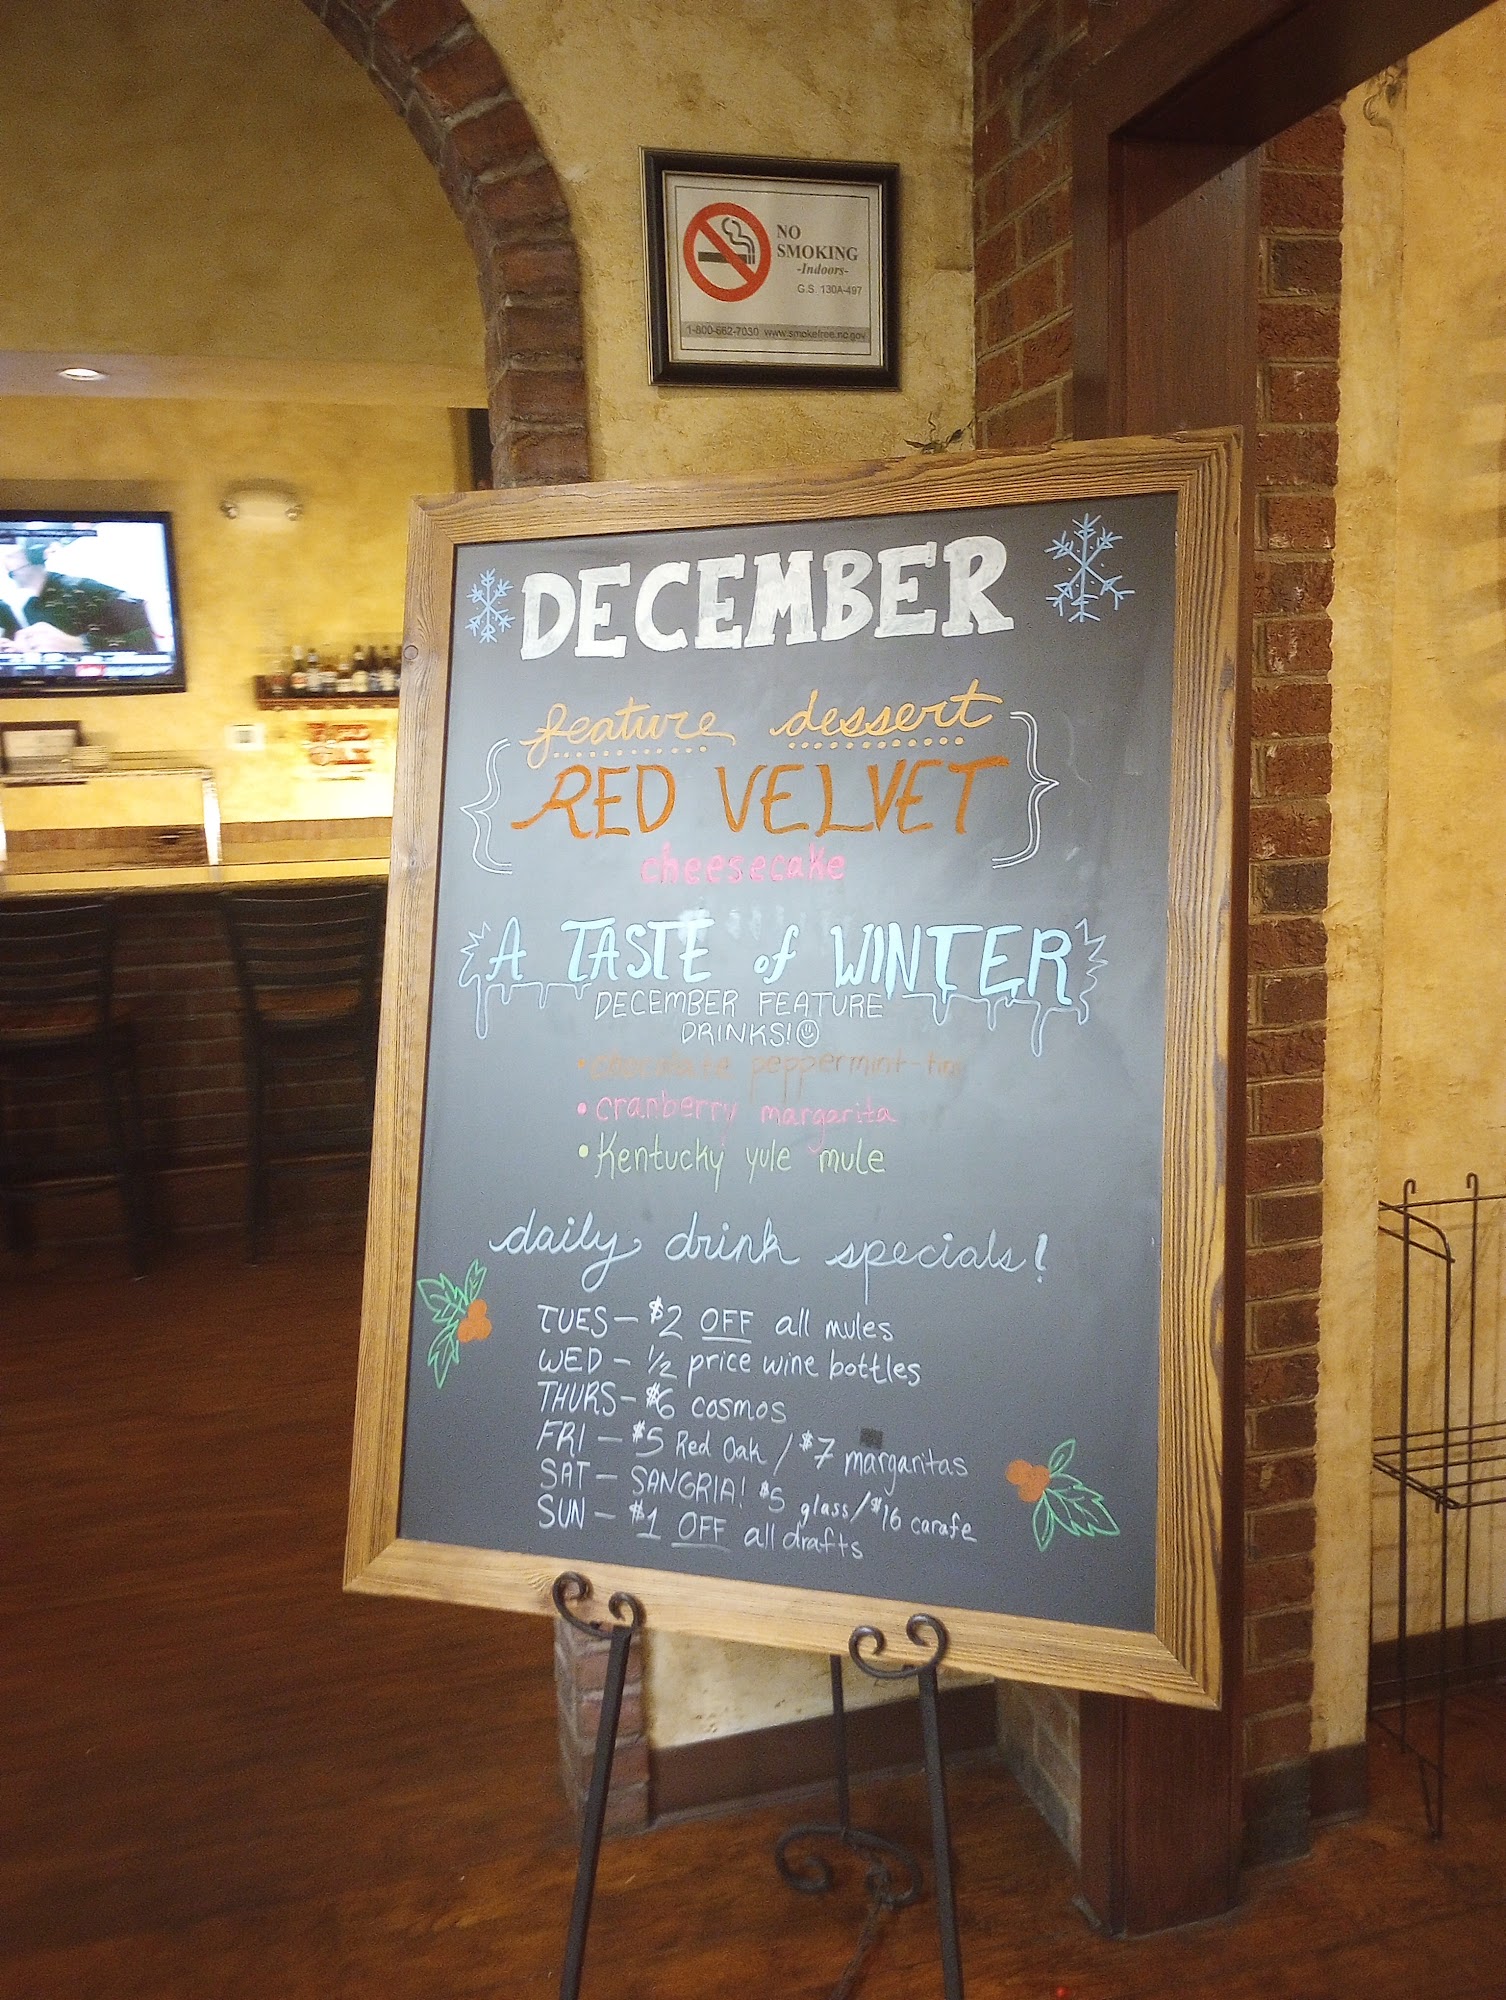 NO
SMOKING
-Indoors-
G.S. 130A-497
1-800-662-7030 www.smokefree.nc.gov
DECEMBER
feature dessert
RED VELVET
cheesecake
A TASTE of WINTER
DECEMBER FEATURE
DRINKS!
•chocolate peppermint-tini
•cranberry margarita
•Kentucky yule mule
daily drink specials!
TUES— $2 OFF all mules
WED – 1/2 price wine bottles
THURS— $6 cosmos
FRI — $5 Red Oak / $7 margaritas
SAT — SANGRIA! $5 glass/$16 carafe
SUN — $1 OFF all drafts
RED
OAK